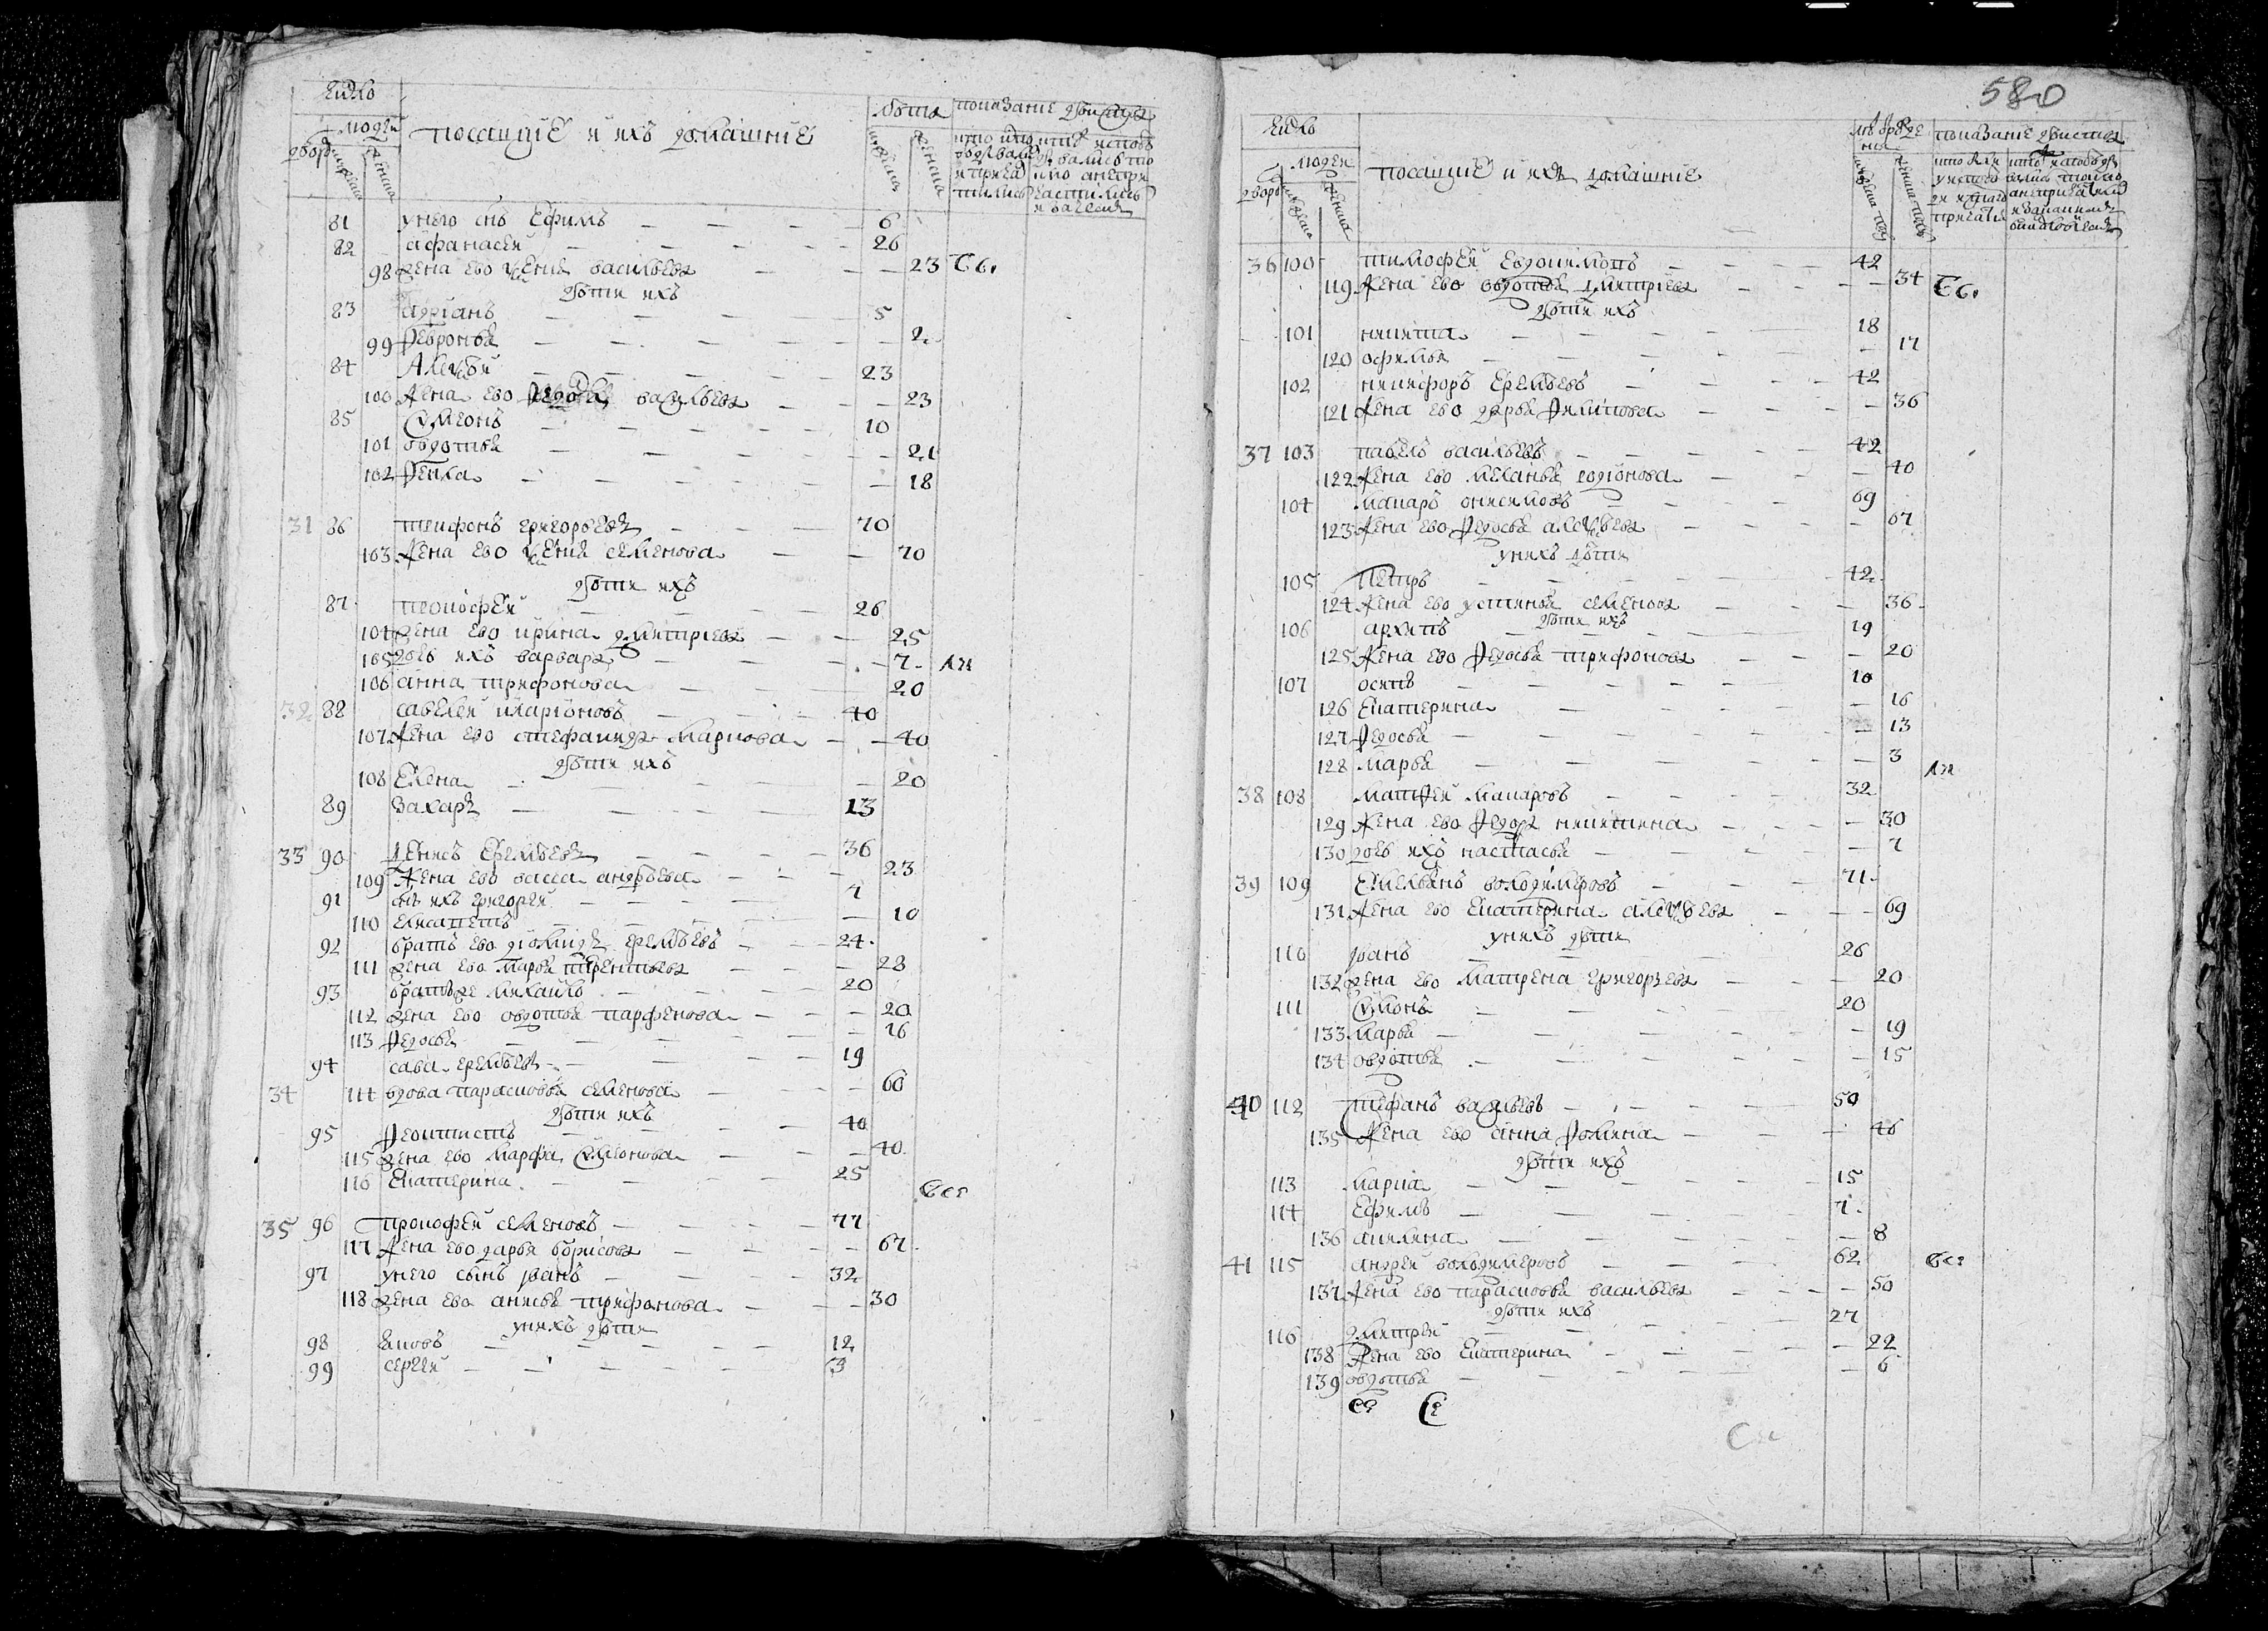 число
людей
посацкие и ихъ домашние
лѣта
показание действа
81 у него снъ Ефимъ 6
82 афанасей 26
98 жена ево ѯения васильева 23 Св.
дѣти ихъ
83 адрianъ 5
99 Ѳевронья 2
84 Алеѯѣй 23
100 жена ево васильева 23
85 Сѵмеонъ 10
101 овдотья 21
102 Ѳекла 18
31 86 трифонъ григорьевъ 70
103 жена ево ѯения семенова 70
дѣти ихъ
87 прокофей 26
104 жена ево ирина дмитриева 25
105 дочь ихъ варвара 7
106 анна трифонова 20
32 88 савелей иларионовъ 40
107 жена ево стефанида маркова 40
дѣти ихъ
108 Елена 20
89 Захаръ 13
33 90 денисъ Еремѣевъ 36
109 жена ево васса андрѣева 23
91 снъ ихъ григорей 7
110 Елисаветъ 10
92 братъ ево диомидъ еремѣевъ 24
111 жена ево марья терентьева 28
93 братъ же михаило 20
112 жена ево овдотья парфенова 20
113 Ѳедосья 16
94 сава еремѣевъ 19
34 114 вдова парасковья семенова 60
дѣти ихъ
95 Ѳеоктистъ 40
115 жена ево марфа Сѵмеонова 40
116 Екатерина 25
35 96 прокофей семеновъ 77
117 жена ево дарья борисова 67
97 у него сынъ иванъ 32
118 жена ево анисья трифонова 30
у нихъ дѣти
98 яковъ 12
99 сергей 3
580
число
людей
посацкие и ихъ домашние
показание действа
36 100 тимофей Евдокимовъ 42
119 жена ево овдотья дмитриева 34 Св.
дѣти ихъ
101 никита 18
120 офимья 17
102 никифоръ Еремѣевъ 42
121 жена ево дарья Ѳилипова 36
37 103 павелъ васильевъ 42
122 жена ево меланья родионова 40
104 макаръ онисимовъ 69
123 жена ево Ѳедосья алеѯѣева 67
у нихъ дѣти
105 Петръ 42
124 жена ево устинья семенова 36
дѣти ихъ
106 архипъ 19
125 жена ево Ѳедосья трифонова 20
107 осипъ 10
126 Екатерина 16
127 Ѳедосья 13
128 марья 3
38 108 матѳей макаровъ 32
129 жена ево Ѳедора никитина 30
130 дочь ихъ настасья 7
39 109 Емельянъ володимеровъ 71
131 жена ево Екатерина алеѯѣева 69
у нихъ дѣти
110 иванъ 26
132 жена ево матрена григорьева 20
111 Сѵмонъ 20
133 марья 19
134 овдотья 15
40 112 Стефанъ васильевъ 50
135 жена ево анна Ѳомина 46
дѣти ихъ
113 марка 15
114 Ефимъ 7
136 акилина 8
41 115 андрей володимеровъ 62
137 жена ево парасковья васильева 50
дѣти ихъ
116 дмитрей 27
138 жена ево Екатерина 22
139 овдотья 6